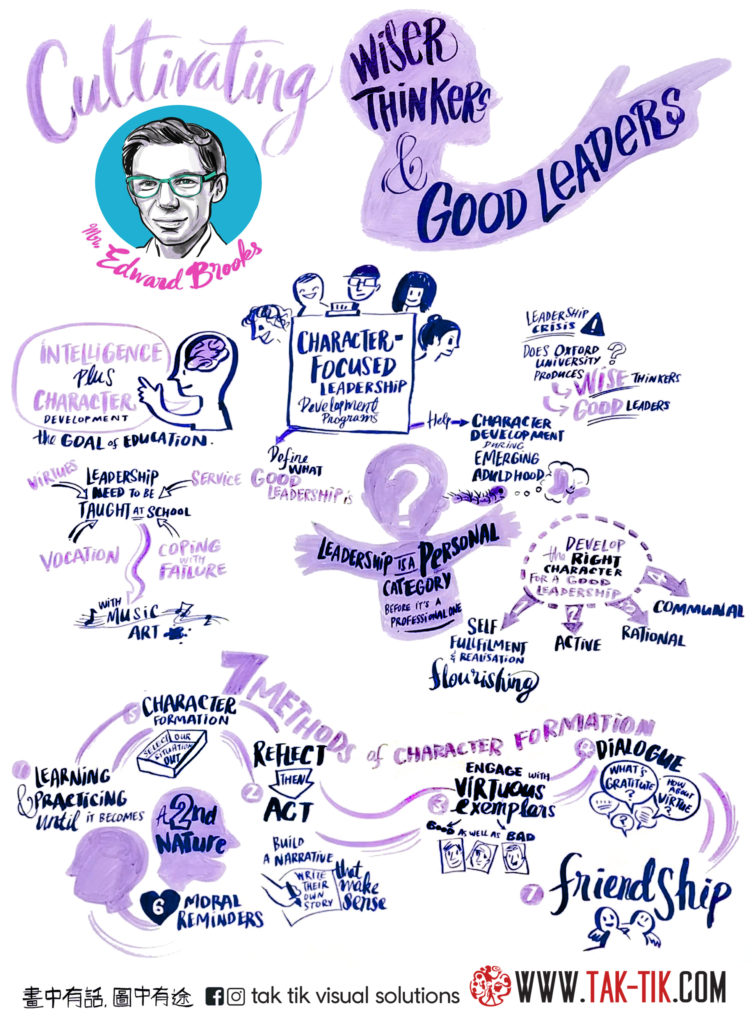 Cultivating
WiSER
THiNKERS
&
GOOD LEADERS
Mr.
Edward Brooks
INTELLIGENCE
Plus
CHARACTER
DEVELOPMENT
the GOAL of EDUCATION.
CHARACTER-
FOCUSED
LEADERSHIP
Development
Programs
LEADERSHIP
CRISIS
!
DOES OXFORD
UNIVERSITY
PRODUCES
?
WISE THINKERS
GOOD LEADERS
Define
WHAT
GOOD
LEADERSHIP is
Help
CHARACTER
DEVELOPMENT
DURING
EMERGING
ADULDHOOD
VIRTUES
SERVICE
LEADERSHIP
NEED TO BE
TAUGHT AT SCHOOL
VOCATION
COPING
WITH
FAILURE
WITH MUSIC
ART
?
LEADERSHIP IS A PERSONAL
CATEGORY
BEFORE IT'S A
PROFESSIONAL ONE
DEVELOP
the RIGHT
CHARACTER
FOR A GOOD
LEADERSHIP
1
SELF
FULLFILMENT
& REALISATION
flourishing
2
ACTIVE
3
RATIONAL
4
COMMUNIAL
7 METHODS of CHARACTER FORMATION
1
LEARNING
& PRACTICING
Until IT BECOMES
A 2nd
NATURE
2
REFLECT
THEN
ACT
BUILD
A NARRATIVE
WRITE
THEIR
OWN
STORY
that
make
sense
3
ENGAGE WITH
VIRTUOUS
exemplars
GOOD AS WELL AS BAD
DIALOGUE
WHAT'S
GRATITUDE
?
HOW
ABOUT
VIRTUE
?
?
CHARACTER
FORMATION
SELECT OUR
SITUATION
OUT
6
MORAL
REMINDERS
7
friendship
畫中有話, 圖中有途
tak tik visual solutions
WWW.TAK-TIK.COM